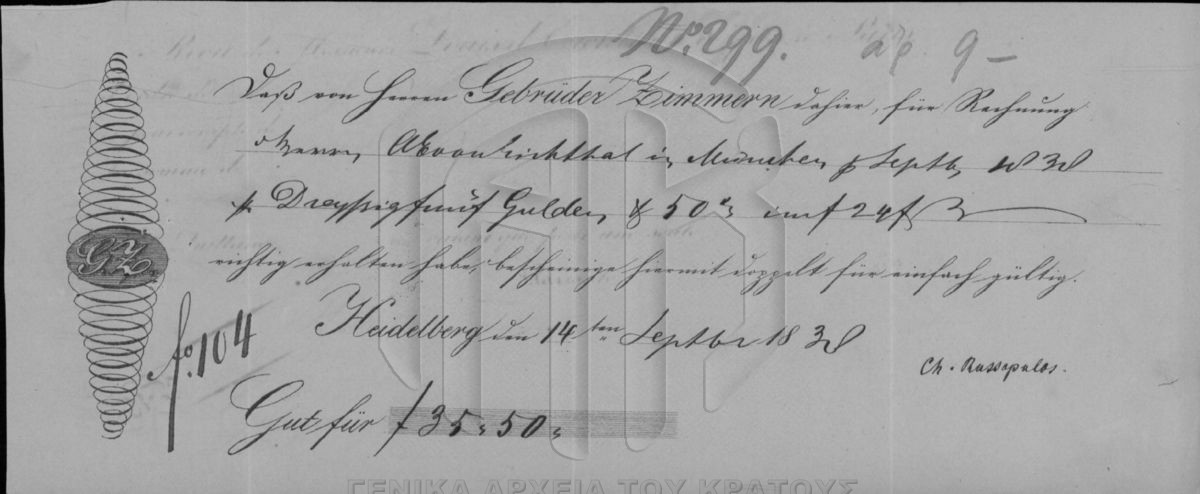 No. 299. 9 –
Daß von Herren Gebrüder Zimmern dahier, für Rechnung
Herrn A E von Eichthal in München p Septb. 1838
f Dreyßig fünf Gulden & 50 x im f 24 f
richtig erhalten habe, bescheinige hiermit doppelt für einfach gültig.
GZ
Heidelberg den 14ten Septbr 1838
fo. 104
Ch. Rassopulos.
Gut für f 35 " 50 "
ΓΕΝΙΚΑ ΑΡΧΕΙΑ ΤΟΥ ΚΡΑΤΟΥΣ